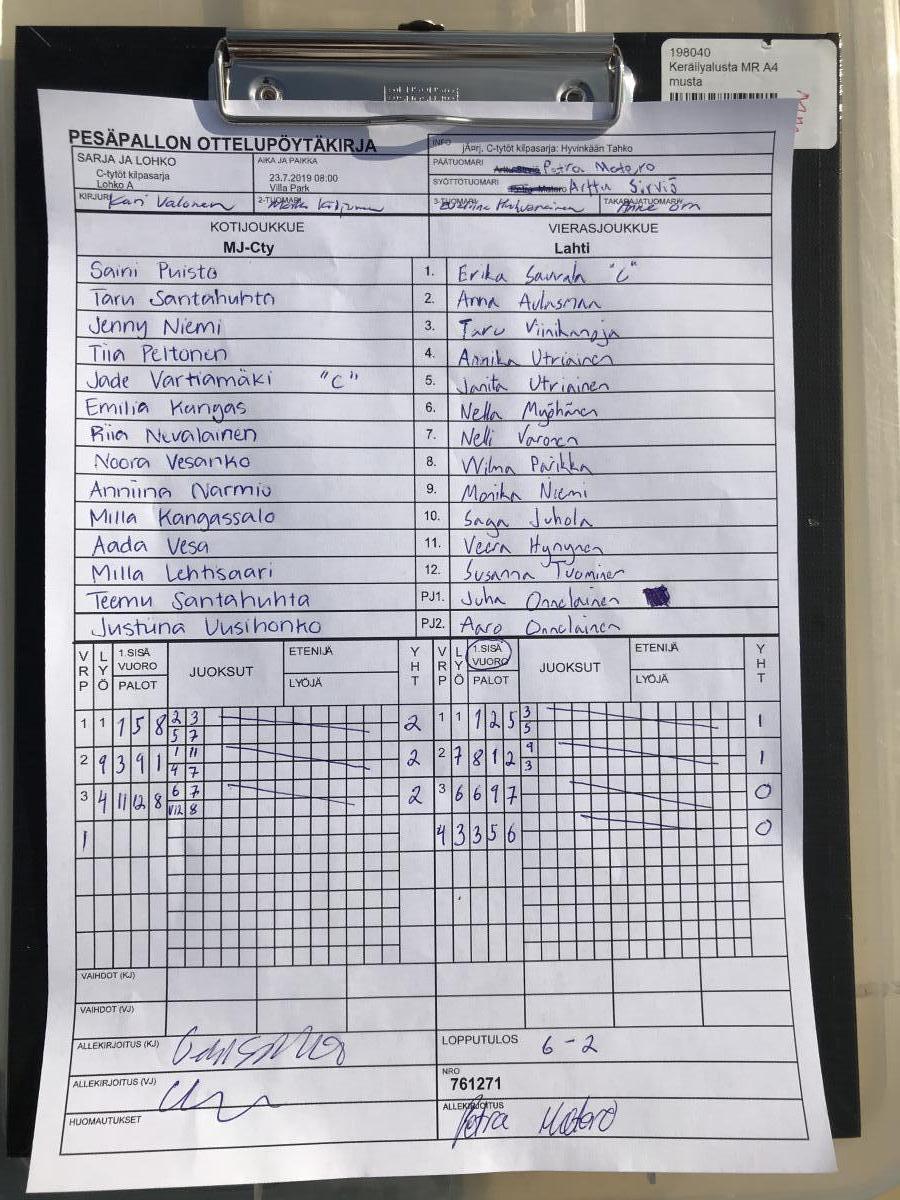 198040
Keräilyalusta MR A4
musta
PESÄPALLON OTTELUPÖYTÄKIRJA
INFO jÄprj. C-tytöt kilpasarja: Hyvinkään Tahko
SARJA JA LOHKO
C-tytöt kilpasarja
Lohko A
AIKA JA PAIKKA
23.7.2019 08:00
Villa Park
PÄÄTUOMARI Petra Matero
SYÖTTÖTUOMARI Arttu Sirviö
KIRJURI Kari Valonen 2-TUOMARI 3-TUOMARI TAKARAJATUOMARI
KOTIJOUKKUE VIERASJOUKKUE
MJ-Cty Lahti
Saini Puisto 1. Erika Saurala "C"
Taru Santahuhta 2. Anna Aulasmaa
Jenny Niemi 3. Taru Viinikanoja
Tiia Peltonen 4. Annika Utriainen
Jade Vartiamäki "C" 5. Janita Utriainen
Emilia Kangas 6. Nella Myöhänen
Riia Nevalainen 7. Nelli Varonen
Noora Vesanko 8. Wilma Parikka
Anniina Narmio 9. Monika Niemi
Milla Kangassalo 10. Saga Juhola
Aada Vesa 11. Veera Hynynen
Milla Lehtisaari 12. Susanna Tuominen
Teemu Santahuhta PJ1. Juha Onnelainen
Justiina Uusihonko PJ2. Aaro Onnelainen
VRP LYÖ 1.SISÄ VUORO PALOT JUOKSUT ETENIJÄ LYÖJÄ YHT VRP LYÖ 1.SISÄ VUORO PALOT JUOKSUT ETENIJÄ LYÖJÄ YHT
1 1 1 5 8 2 3 2 1 1 1 2 5 3 1
5 7 5
2 9 3 9 1 1 11 2 2 7 8 1 2 9 1
4 7 3
3 4 11 12 8 6 7 2 3 6 6 9 7 0
V12 8
1 4 3 3 5 6 0
VAIHDOT (KJ)
VAIHDOT (VJ)
ALLEKIRJOITUS (KJ)
LOPPUTULOS 6-2
ALLEKIRJOITUS (VJ)
NRO
761271
HUOMAUTUKSET
ALLEKIRJOITUS
Petra Matero